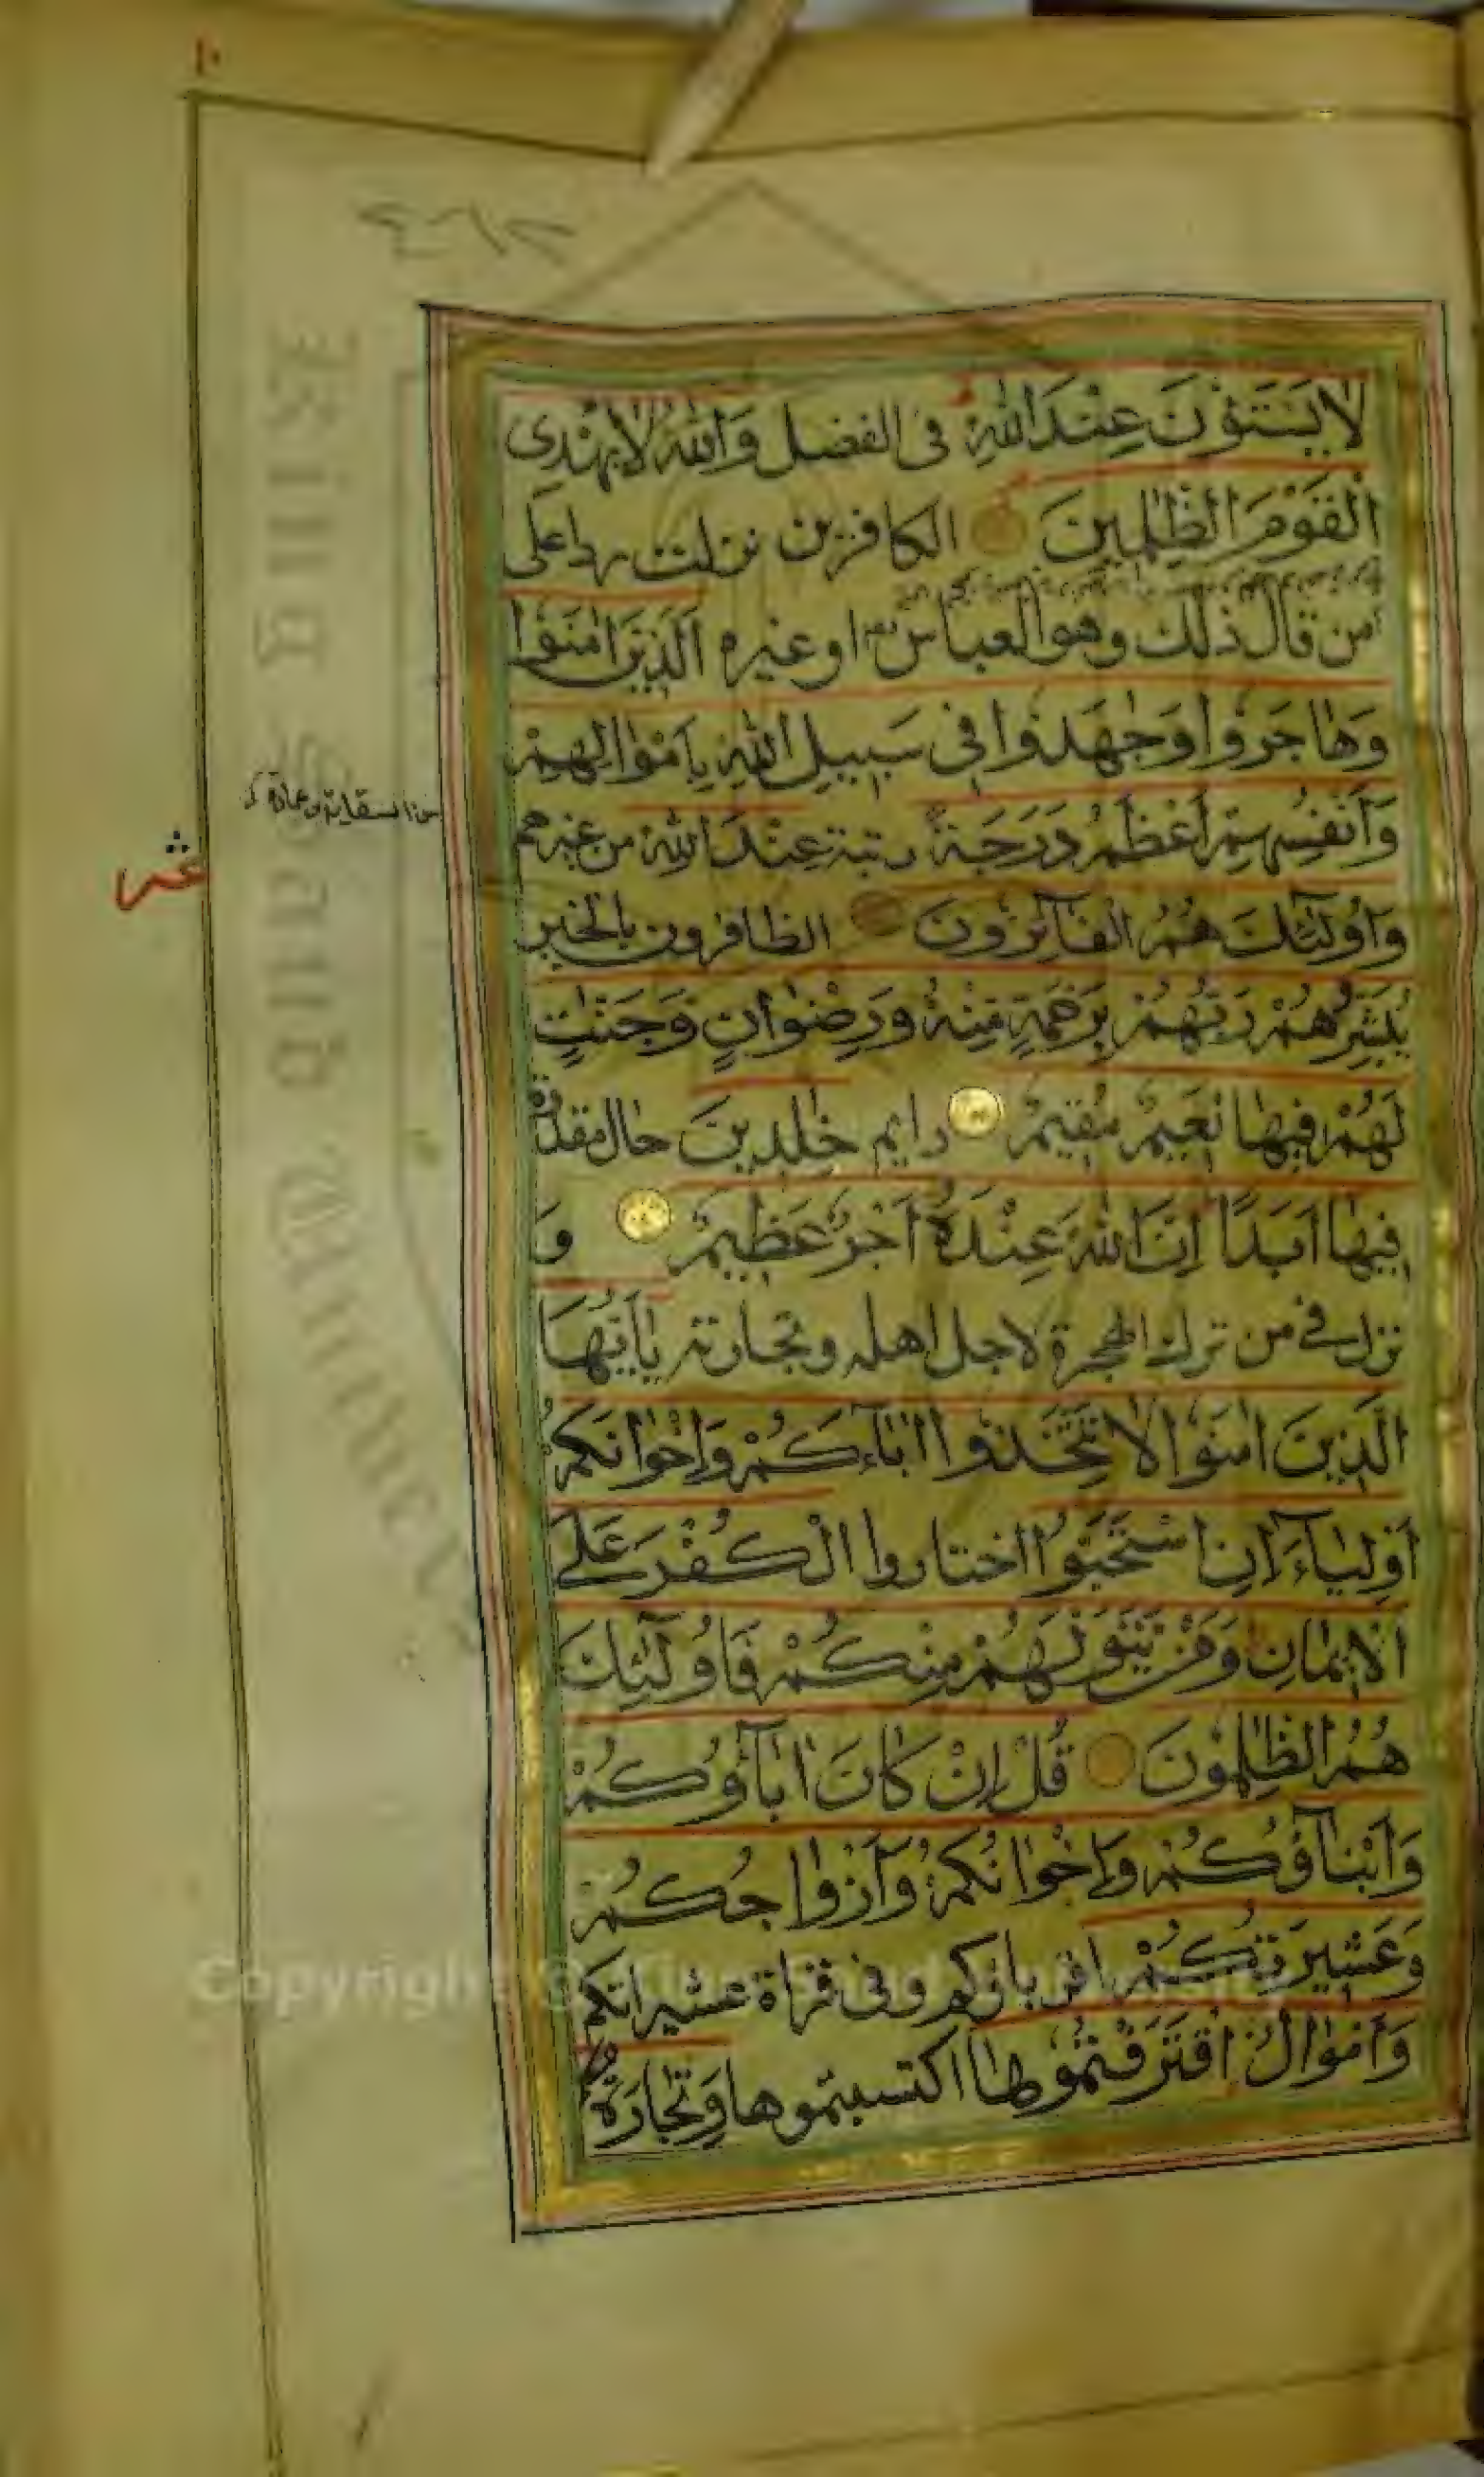 ١٠
لَا يَسْتَوُنَ عِنْدَ اللّٰهِ فى الفضل وَاللّٰهُ لَا يَهْدِى
الْقَوْمَ الظّٰلِمِينَ الكافرين نزلت ردا على
من قال ذلك وهو العباس او غيره اَلَّذِينَ اٰمَنُوا
وَهَاجَرُوا وَجٰهَدُوا فِى سَبِيلِ اللّٰهِ بِاَمْوَالِهِمْ
وَاَنْفُسِهِمْ اَعْظَمُ دَرَجَةً رتبة عِنْدَ اللّٰهِ من غيرهم
وَاُولٰٓئِكَ هُمُ الْفَآئِزُونَ الظافرون بالخير
يُبَشِّرُهُمْ رَبُّهُمْ بِرَحْمَةٍ مِنْهُ وَرِضْوَانٍ وَجَنّٰتٍ
لَهُمْ فِيهَا نَعِيمٌ مُقِيمٌ دايم خٰلِدِينَ حال مقدرة
فِيهَا اَبَدًا اِنَّ اللّٰهَ عِنْدَهُ اَجْرٌ عَظِيمٌ و
نزل في من ترك الهجرة لاجل اهله وتجارته يٰٓاَيُّهَا
الَّذِينَ اٰمَنُوا لَا تَتَّخِذُوا اٰبَآءَكُمْ وَاِخْوَانَكُمْ
اَوْلِيَآءَ اِنِ اسْتَحَبُّوا اختاروا الْكُفْرَ عَلَى
الْاِيمَانِ وَمَنْ يَتَوَلَّهُمْ مِنْكُمْ فَاُولٰٓئِكَ
هُمُ الظّٰلِمُونَ قُلْ اِنْ كَانَ اٰبَآؤُكُمْ
وَاَبْنَآؤُكُمْ وَاِخْوَانُكُمْ وَاَزْوَاجُكُمْ
وَعَشِيرَتُكُمْ اقرباؤكم وفى قراة عشيراتكم
وَاَمْوَالٌ اقْتَرَفْتُمُوهَا اكتسبتموها وَتِجَارَةٌ
عشر
Copyright © King Saud University
King Saud University